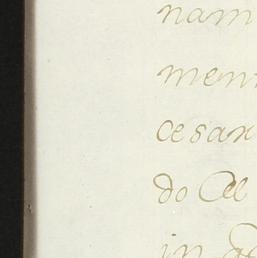 nam
men
cesar
do Al
in